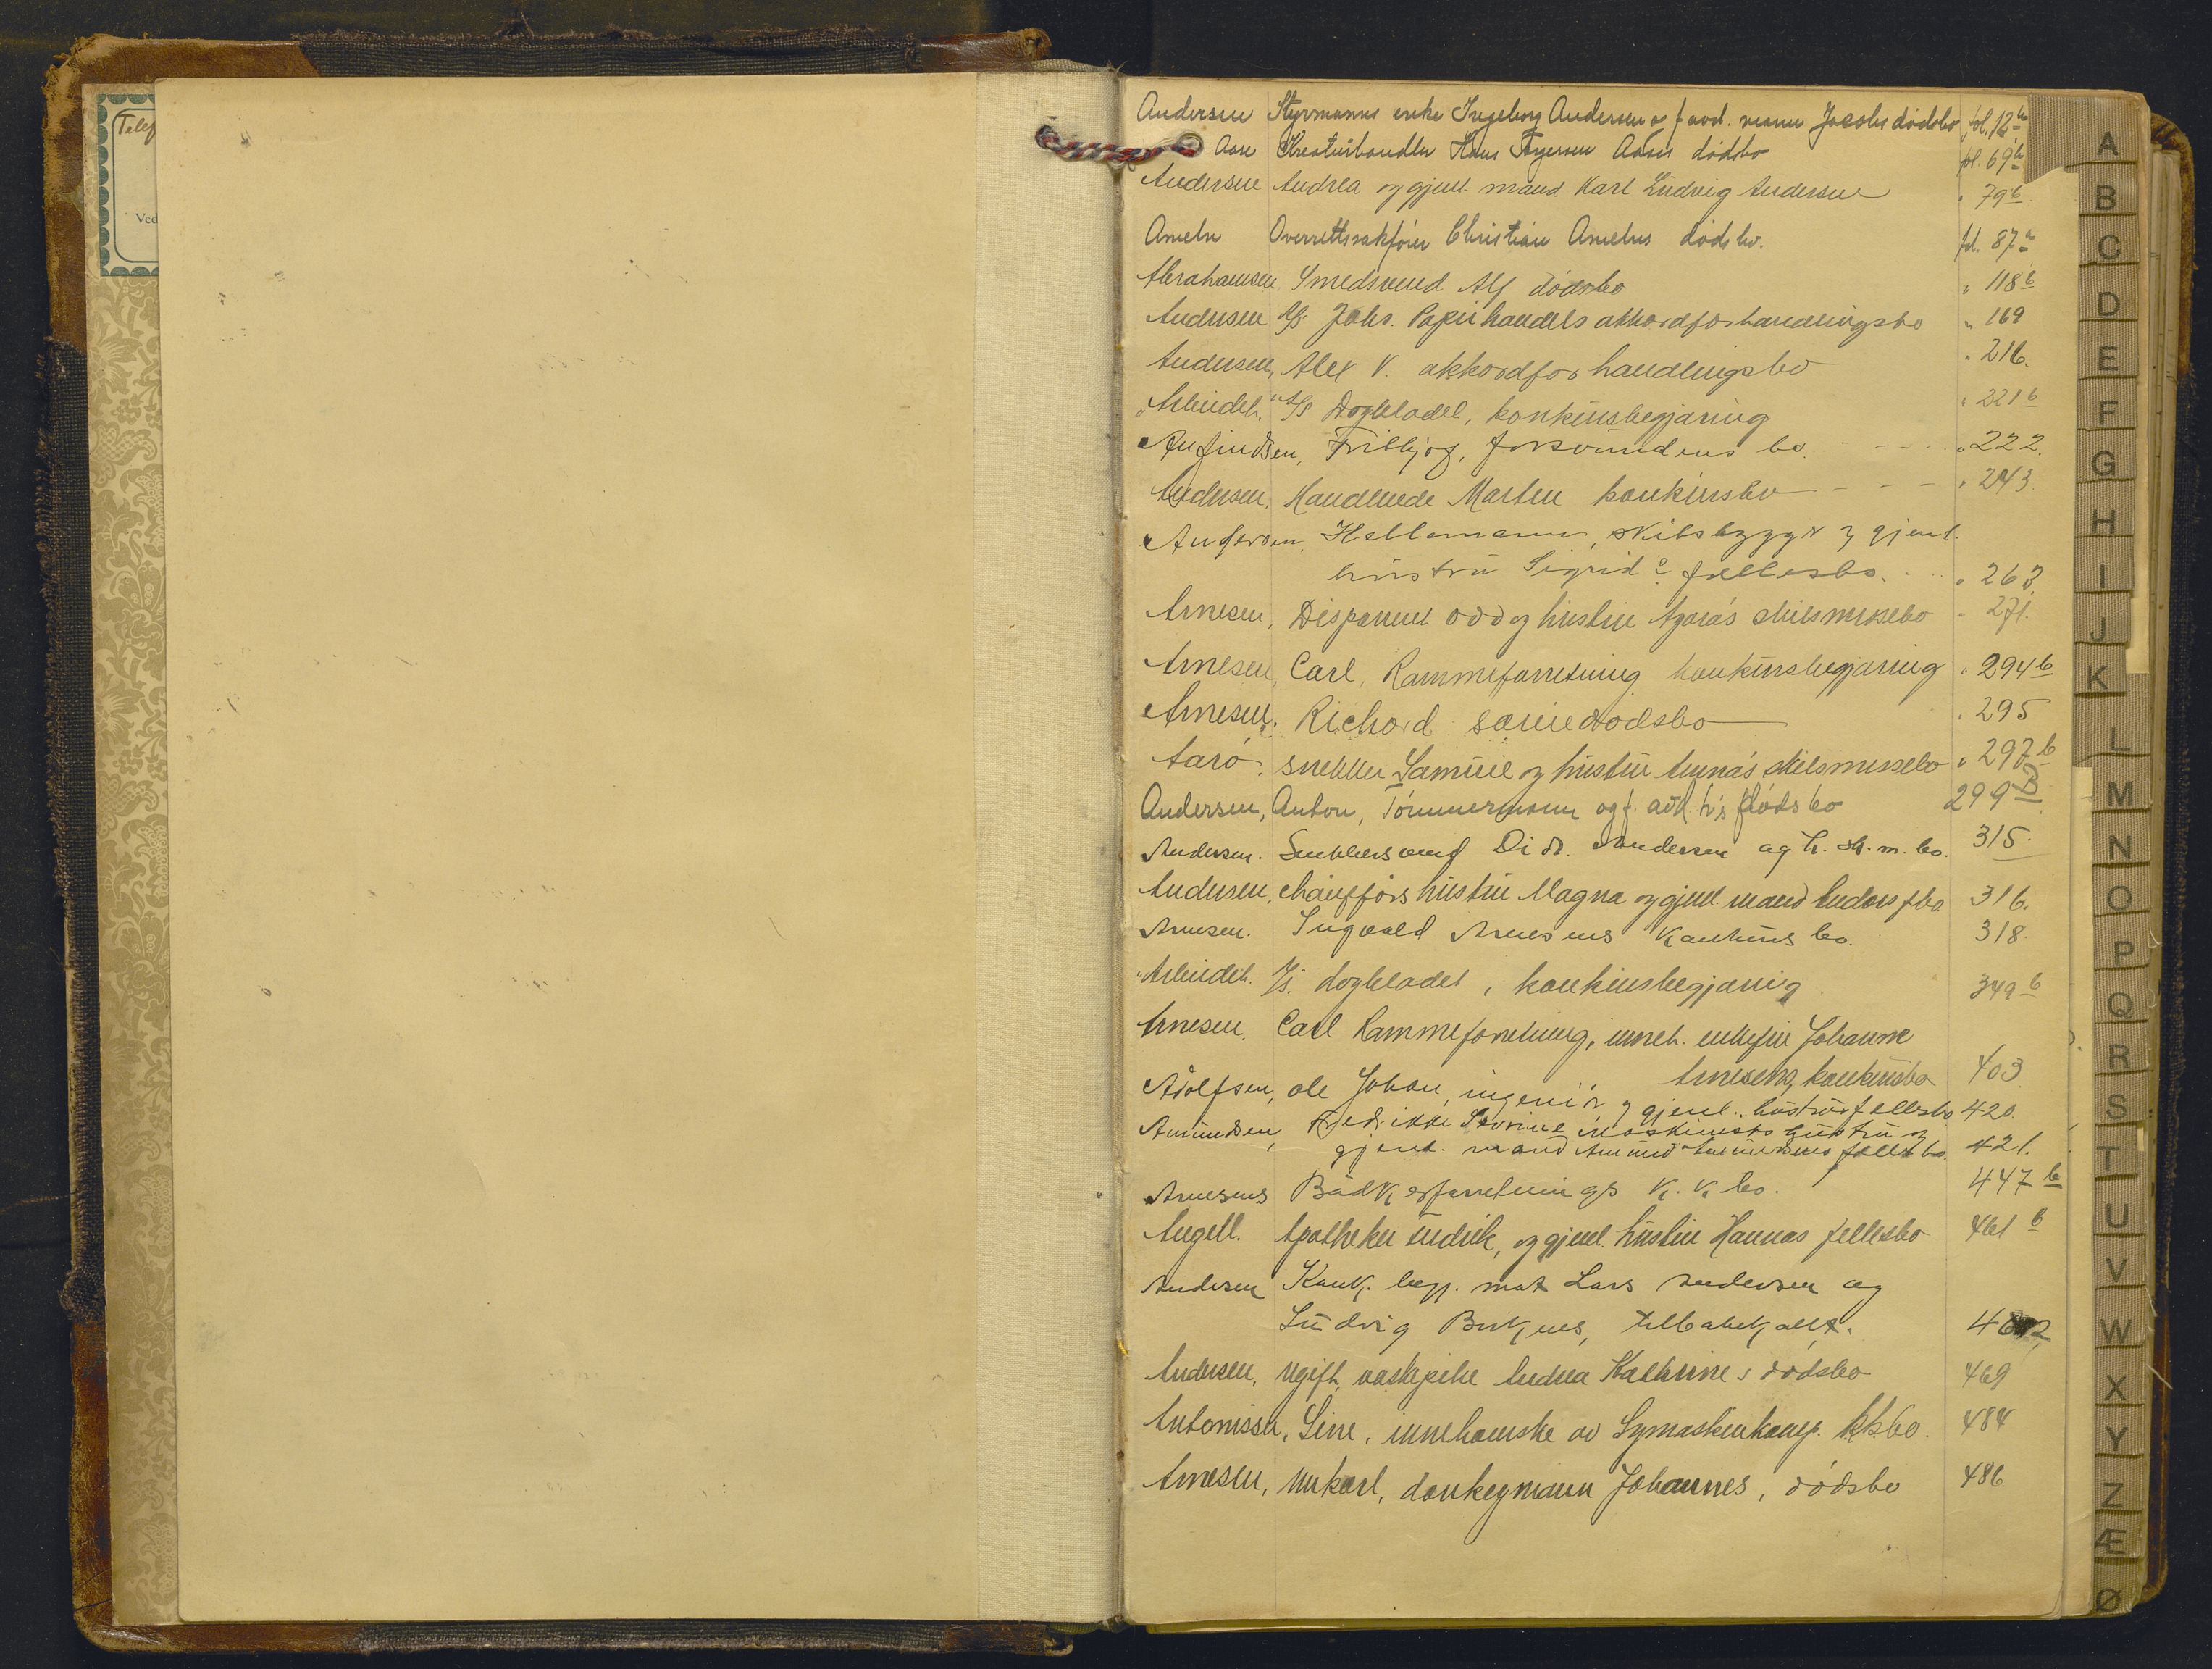 Telef
Ved
Andersen Styrmanns enke Ingeborg Andersen og f. avd. mann Jacobs dødsbo fol. 12b
Aase Kreaturhandler Hans Aases dødsbo fol. 69b
Andersen Andrea og gjenl. mand Karl Ludvig Andersen " 79b
Ameln Overrettssakfører Christian Amelns dødsbo. fol. 87a
Abrahamsen Smedsvend Alf dødsbo " 118b
Andersen A/S Johs. Papirhandels akkordforhandlingsbo " 169
Andersen, Alex V. akkordforhandlingsbo " 216.
"Arbeidet" A/S Dagbladet, konkursbegjæring " 221b
Anfindsen, Fritjof, forsvundens bo. " 222.
Andersen, Handlende Marten konkursbo " 243.
Andersen, skibsbygger og gjenl.
hustru Sigrids fellesbo. " 263
Arnesen, Disponent Odd og hustru Agora's skilsmissebo " 271.
Arnesen, Carl, Rammeforretning konkursbegjæring " 294b
Arnesen, Richard særiedødsbo " 295
Aarø, snekker Samuel og hustru Anna's skilsmissebo " 297b
Andersen, Anton, Tømmermann og f. avd. h's dødsbo 299B
Andersen. Snekkersvend Didr. Andersen og h. sk. m. bo. 315.
Andersen, chaufførs hustru Magna og gjenl. mand Anders fbo 316.
Arnesen. Ingvald Arnesens Konkurs bo. 318.
"Arbeidet. A/S. dagbladet, konkursbegjæring 349b
Arnesen. Carl Rammeforretning, inneh. enkefru Johanne
Arnesens konkursbo 403
Adolfsen, Ole Johan, ingeniør og gjenl. hustrus fellesbo 420.
Amundsen, Fredrikke Severine maskinists hustru og
gjenl. mand Amund Amundsens fellesbo 421.
Arnesens Bådkforretnings K. K. bo. 447b
Angell. Apotheker Endrik, og gjenl. hustru Hannas fellesbo 461b
Andersen Konk. begj. mot Lars Andersen og
Ludvig Birknes, tilbakekalt. 462
Andersen, ugift vaskepike Andrea Kathrine s dødsbo 469
Antonissen, Sine, innehaverske av Symaskinkomp. kksbo. 484
Arnesen, unkarl, donkeymann Johannes, dødsbo 486
A
B
C
D
E
F
G
H
I
J
K
L
M
N
O
P
Q
R
S
T
U
V
W
X
Y
Z
Æ
Ø